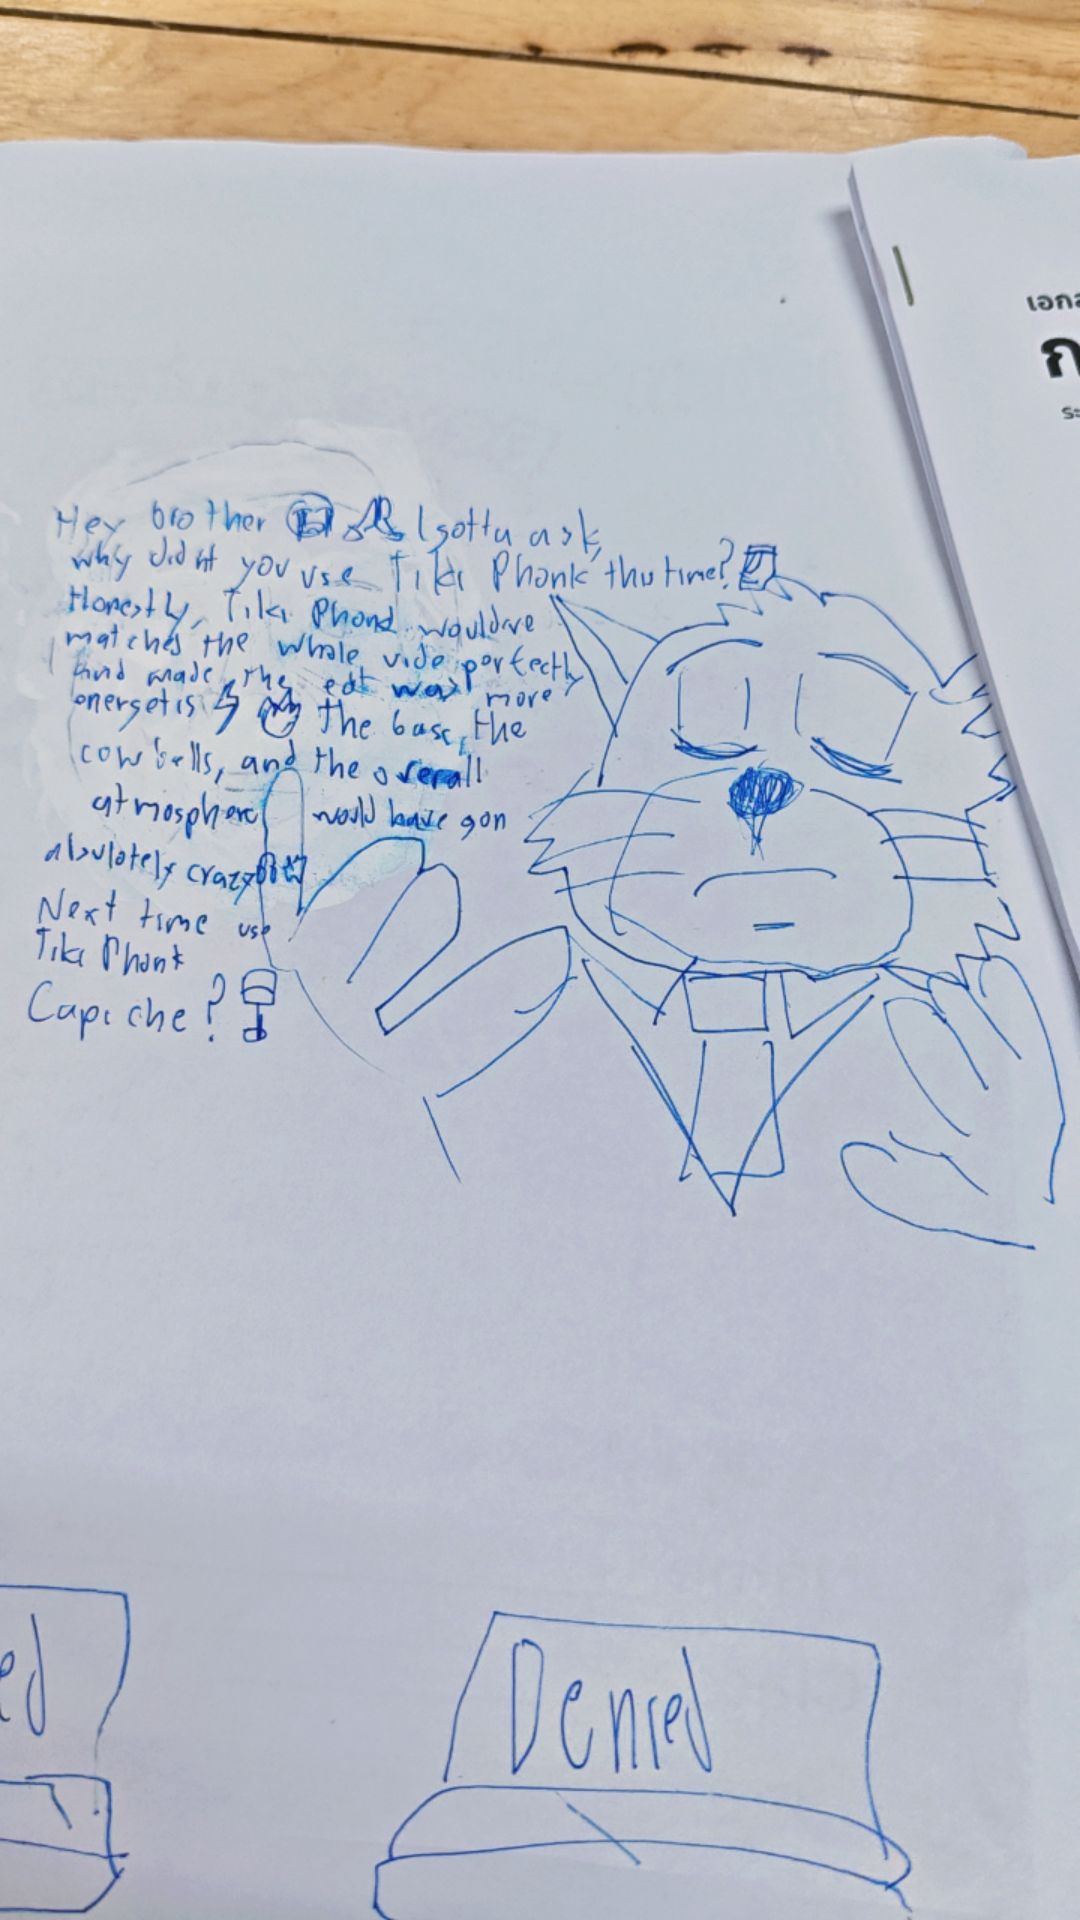 Hey brother I gotta ask,
why didnt you use Tiki Phonk this time?
Honestly, Tiki Phond wouldve
matches the whole vide porfectly
and made the edt way more
energetis the base, the
cowbells, and the overall
atmosphere would have gon
absulotely crazy
Next time use
Tiki Phonk
Capiche?
เอก
ก
ระ
ed
Denied